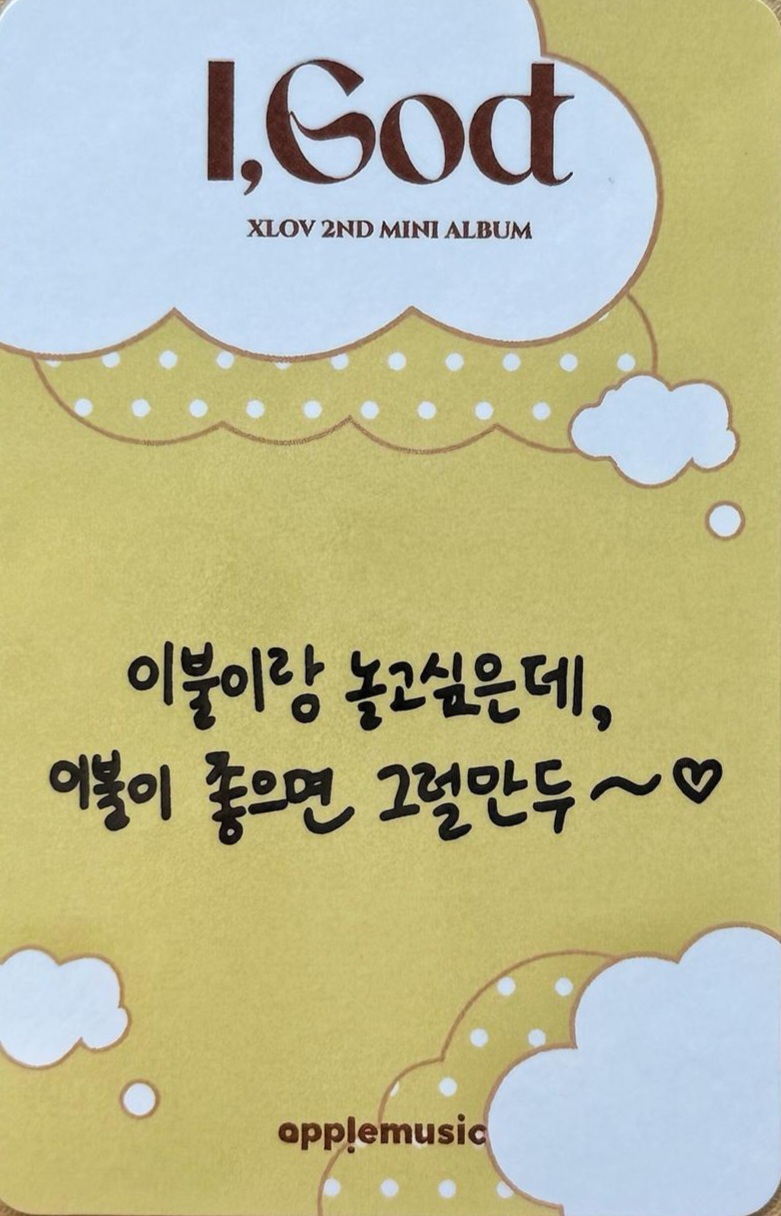 I,God
XLOV 2ND MINI ALBUM
이불이랑 놀고싶은데,
이불이 좋으면 그럴만두~♡
applemusic